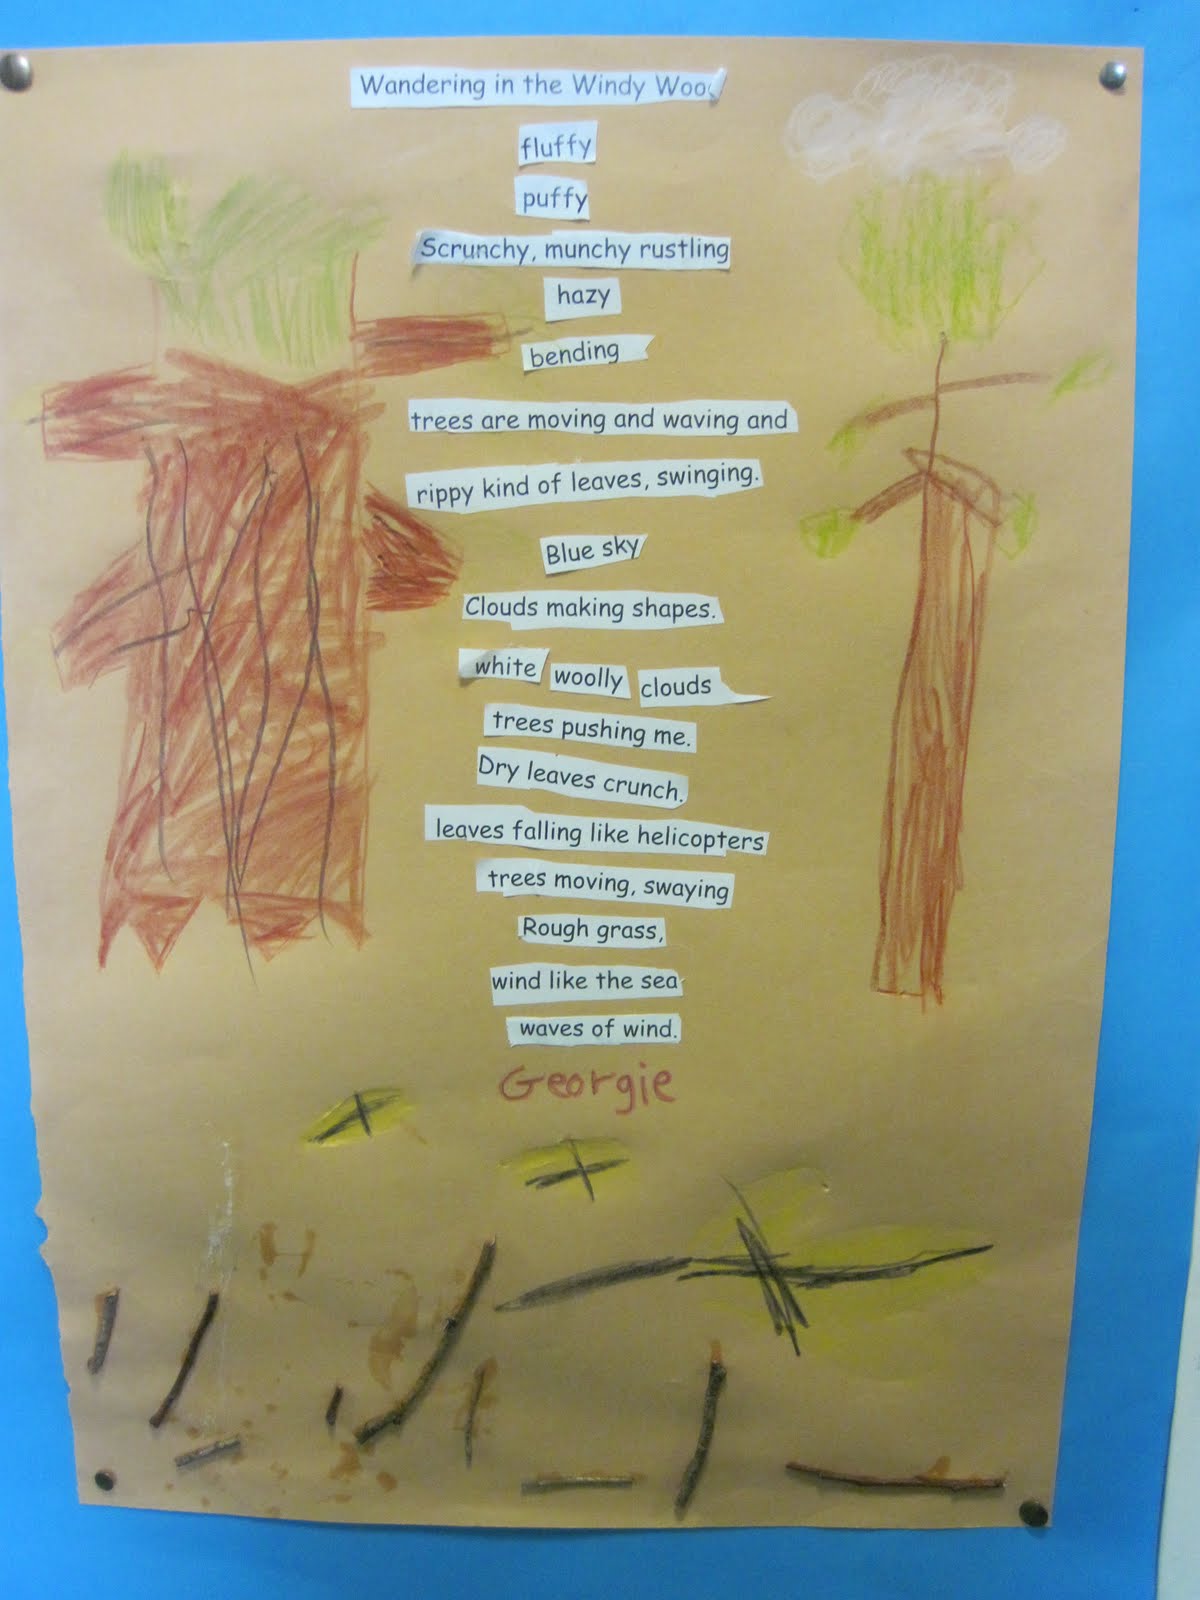 Wandering in the Windy Woo
fluffy
puffy
Scrunchy, munchy rustling
hazy
bending
trees are moving and waving and
rippy kind of leaves, swinging.
Blue sky
Clouds making shapes.
white woolly clouds
trees pushing me.
Dry leaves crunch.
leaves falling like helicopters
trees moving, swaying
Rough grass,
wind like the sea
waves of wind.
Georgie